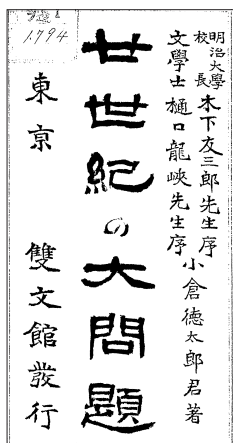 明治大學校長木下友三郎先生序
文學士樋口龍峽先生序
小倉德太郎君著
廿世紀の大問題
東京 雙文館發行
1794